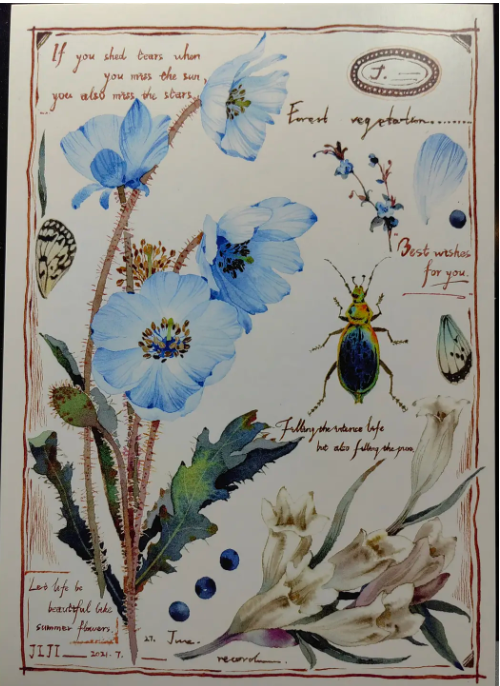 If you shed tears when
you miss the sun,
you also miss the stars.
J.
Forest vegetation
Best wishes
for you.
Filling the intence life
but also filling the
Let life be
beautiful like
summer flowers
JIJI 2021.7.
27. June.
record